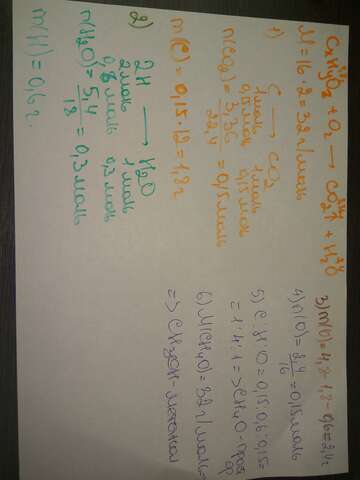 CxHyOz + O₂ → CO₂↑ + H₂O
M = 16 · 2 = 32 г/моль
1)
C → CO₂
1моль 1моль
0,15моль 0,15моль
n(CO₂) = 3,36 / 22,4 = 0,15моль
m(C) = 0,15 · 12 = 1,8г
2)
2H → H₂O
2моль 1моль
0,3моль
n(H₂O) = 5,4 / 18 = 0,3моль
m(H) = 0,6г.
3) m(O) = 4,8 - 1,8 - 0,6 = 2,4г
4) n(O) = 2,4 / 16 = 0,15моль
5) C:H:O = 0,15:0,6:0,15 =
= 1:4:1 => CH₄O -
6) M(CH₄O) = 32г/моль =
=> CH₃OH - метанол